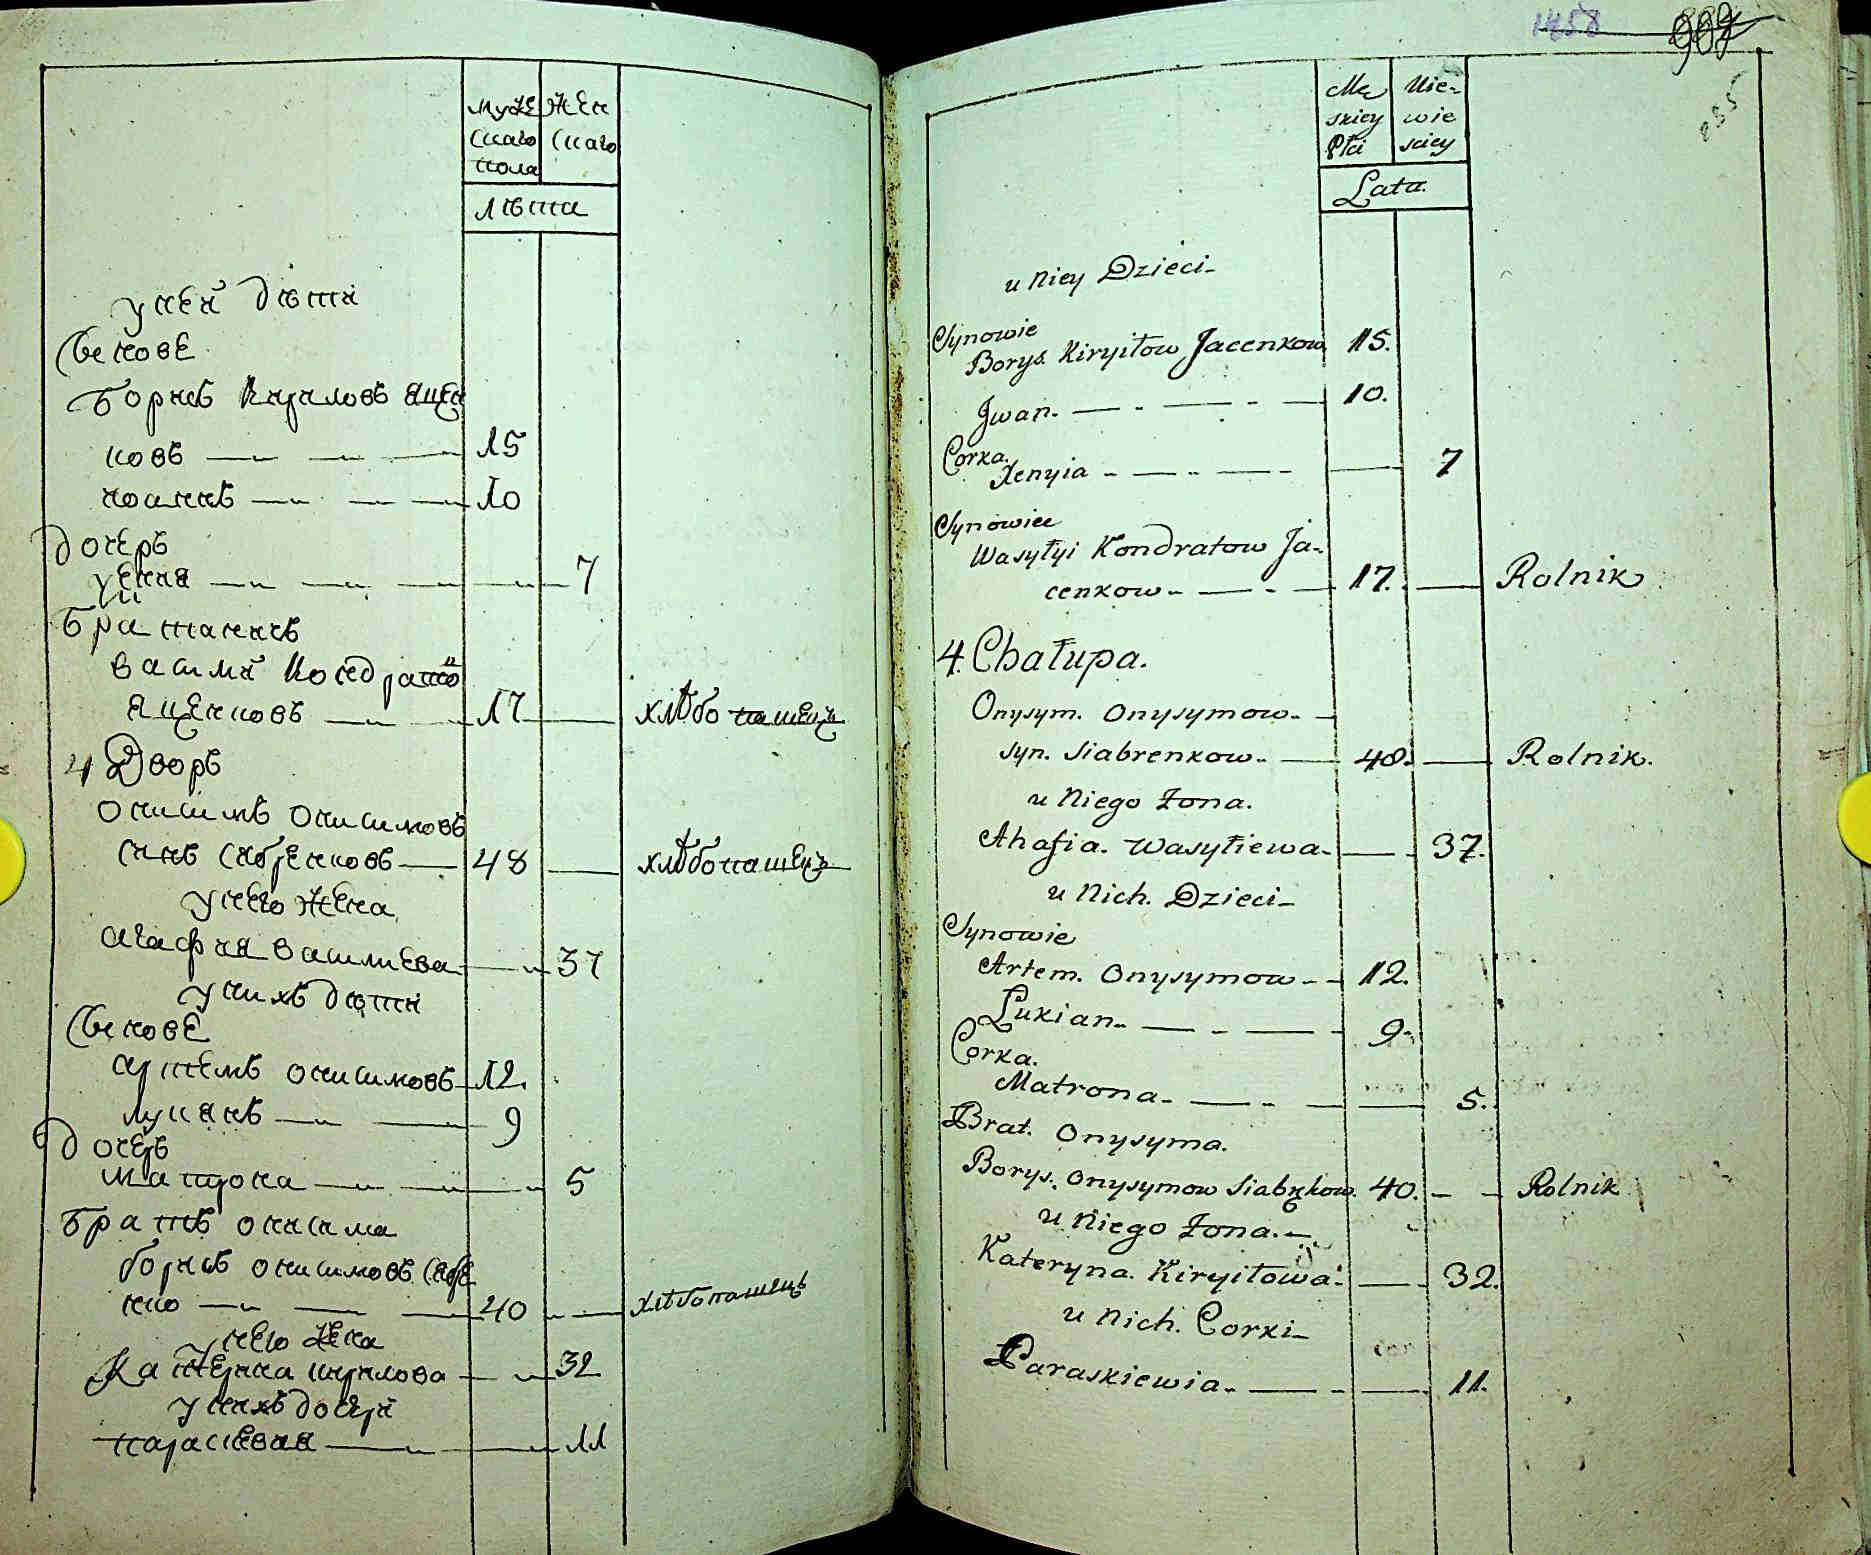 Муже Жен
скаго скаго
пола
лѣта
у неи дѣти
Сынове
Борисъ Кириловъ Ящен
ковъ 15
иоаннъ 10
дочерь
ксения 7
Братаничъ
василий Кондратов
Ященковъ 17 хлѣбопашецъ
4 Дворъ
Онисимъ Онисимовъ
синъ Сябренковъ 48 хлѣбопашецъ
у него жена
Агафия василиева 37
у нихъ дѣти
Сынове
артемъ онисимовъ 12.
лукянъ 9
дочерь
матрона 5
Братъ онисима
борисъ онисимовъ Сябре
нко 40 хлѣбопашецъ
у него жена
Катерина кирилова 32
у нихъ дочери
параскевия 11
1458 907
Mę Nie-
skiey wie
Płci sciey
Lata.
u Niey Dzieci
Synowie
Borys. Kiryiłow Jacenkow 15.
Jwan. 10.
Corka.
Xenyia 7
Synowiec
Wasyłyi Kondratow Ja-
cenkow 17. Rolnik
4. Chałupa.
Onysym. Onysymow.
syn. Siabrenkow. 48. Rolnik.
u Niego Żona.
Ahafia. Wasyłiewa. 37.
u Nich. Dzieci
Synowie
Artem. Onysymow 12.
Lukian. 9.
Corka.
Matrona. 5.
Brat. Onysyma.
Borys. Onysymow Siabrękow. 40. Rolnik
u Niego Żona.
Kateryna. Kiryiłowa. 32.
u Nich. Corki
Paraskiewia. 11.